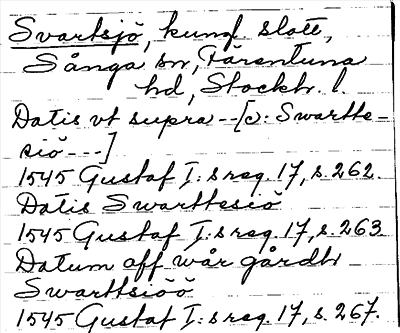 Svartsjö, kungl. slott,
Sånga sn, Färentuna
hd, Stockh. l.
Datis vt supra --[ɔ: Swartte-
siö ---]
1545 Gustaf I:s reg. 17, s. 262.
Datis Swarttesiö
1545 Gustaf I:s reg. 17, s. 263.
Datum aff wår gårdh
Swarttsiöö
1545 Gustaf I:s reg. 17, s. 267.